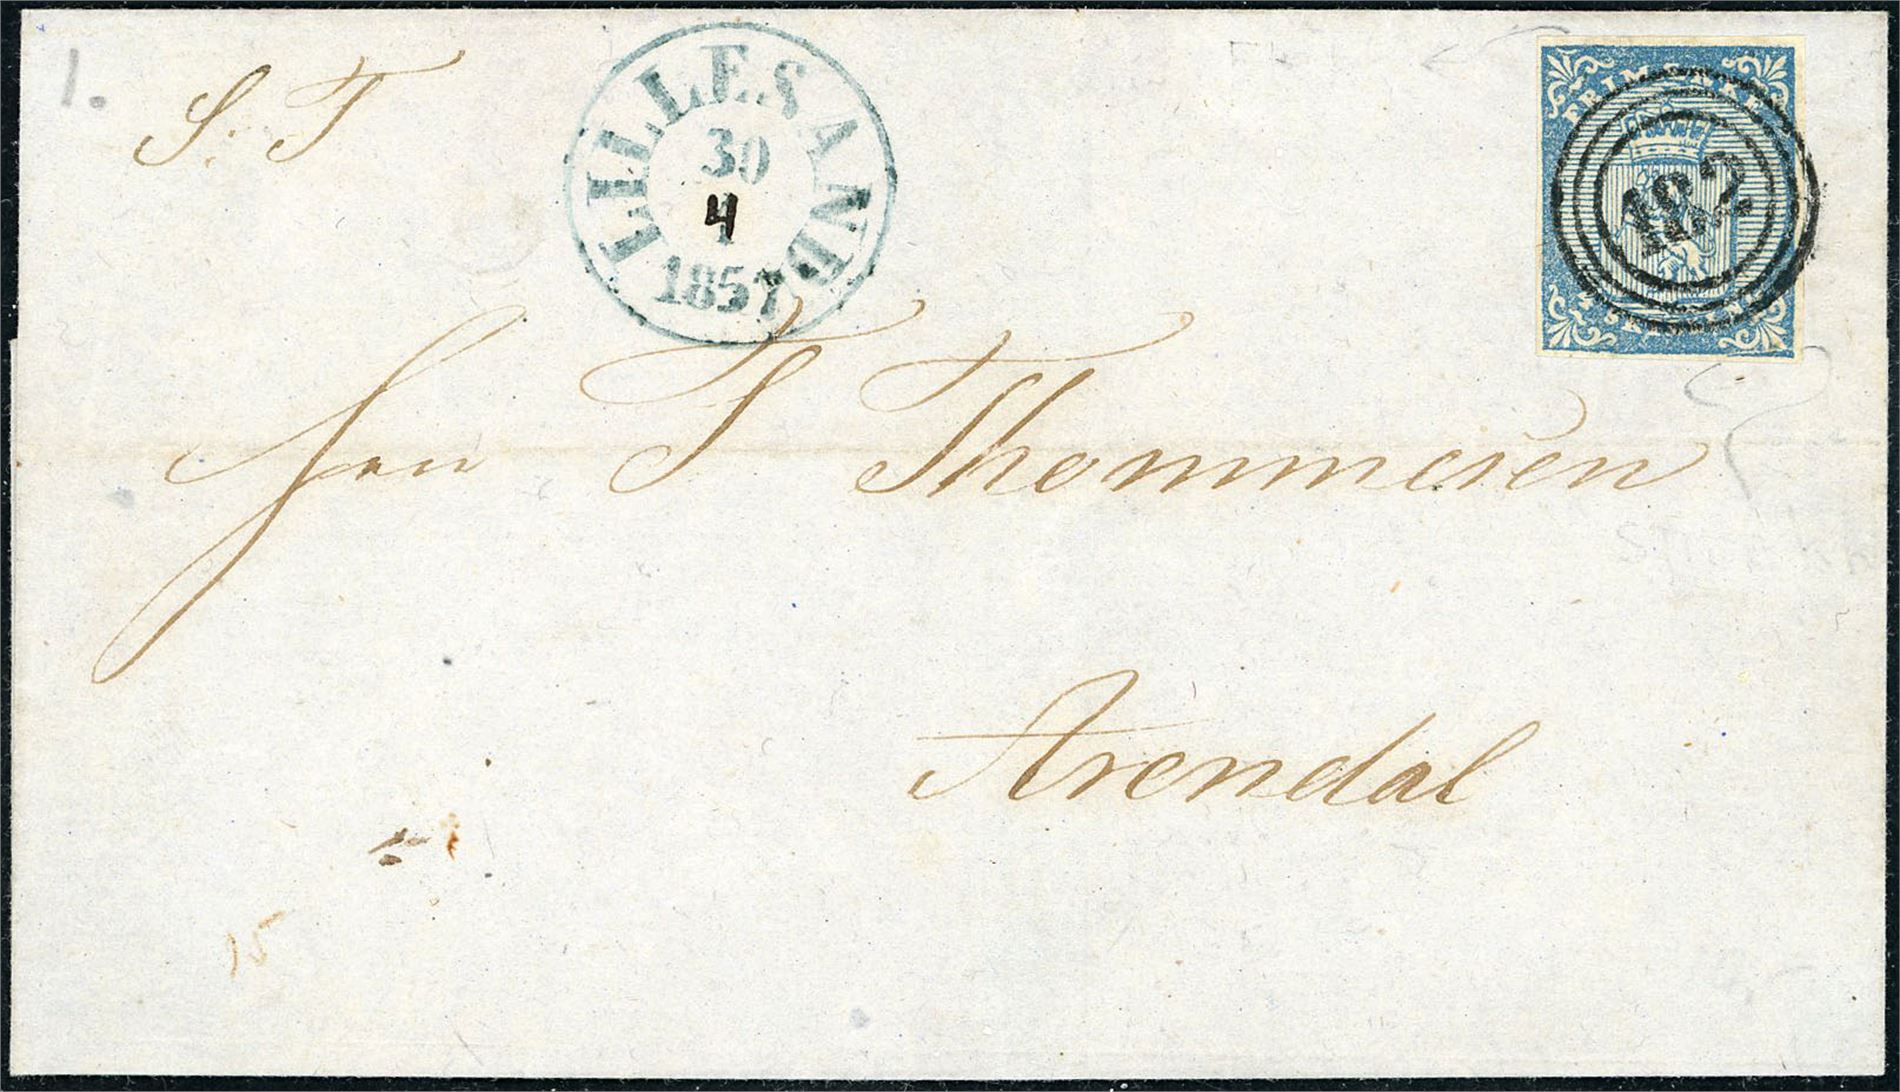 1.
S. T
LILLESAND
30
4
1857
FRIMÆRKE
182
4 SKILLING
Herr T Thommesen
Arendal
15